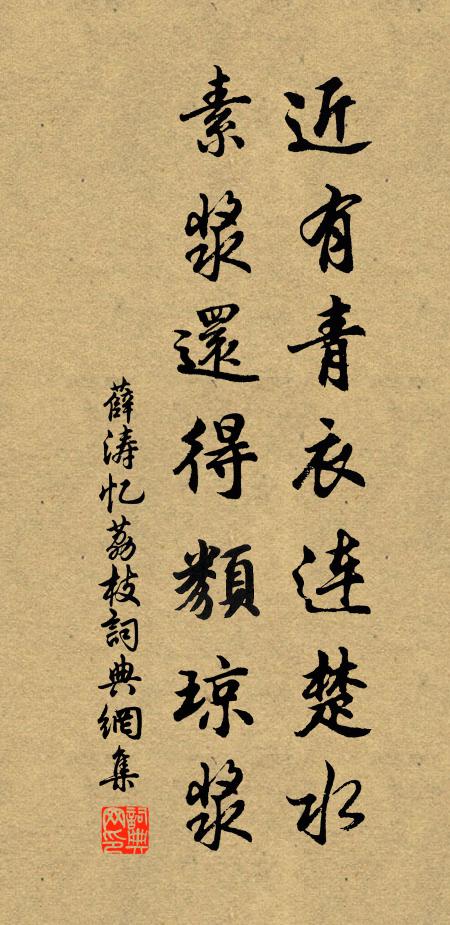 近有青衣连楚水
素浆還得類琼浆
薛涛忆荔枝詞典網集
詞典网印